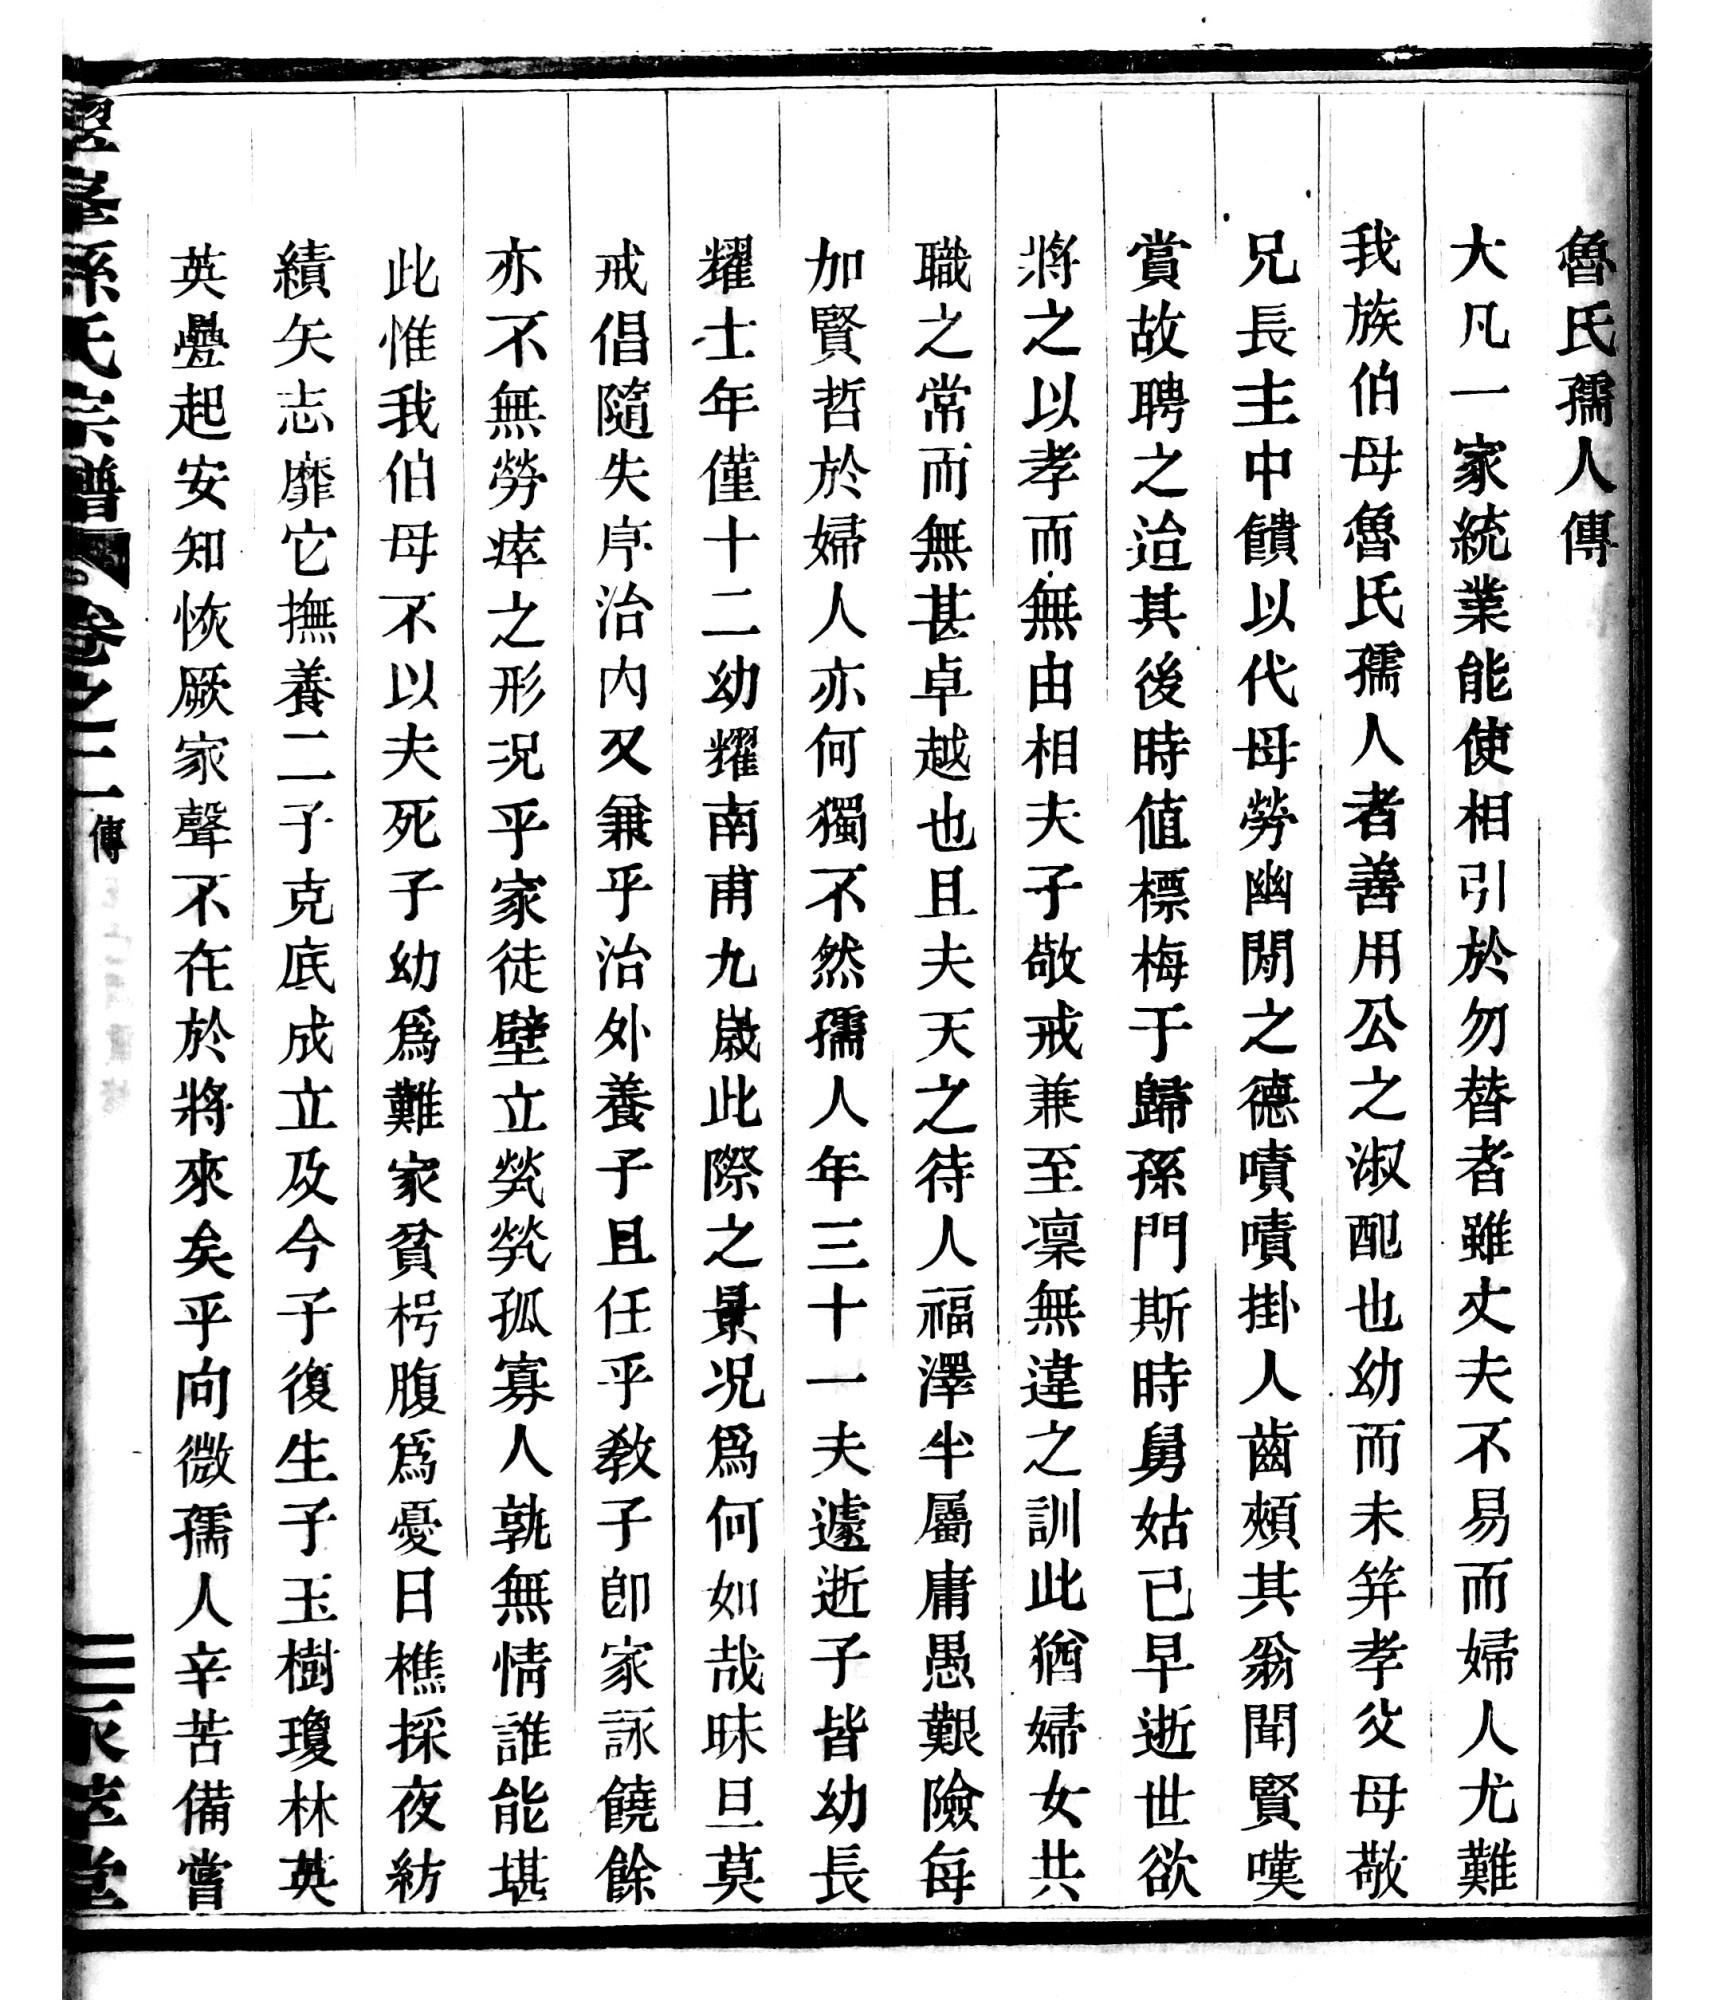 魯氏孺人傳
大凡一家統業能使相引於勿替者雖丈夫不易而婦人尤難
我族伯母魯氏孺人者善用公之淑配也幼而未笄孝父母敬
兄長主中饋以代母勞幽閒之德嘖嘖掛人齒頰其翁聞賢嘆
賞故聘之迨其後時值標梅于歸孫門斯時舅姑已早逝世欲
將之以孝而無由相夫子敬戒兼至凜無違之訓此猶婦女共
職之常而無甚卓越也且夫天之待人福澤半屬庸愚艱險每
加賢哲於婦人亦何獨不然孺人年三十一夫遽逝子皆幼長
耀士年僅十二幼耀南甫九歲此際之景況爲何如哉昧旦莫
戒倡隨失序治內又兼乎治外養子且任乎教子卽家詠饒餘
亦不無勞瘁之形况乎家徒壁立煢煢孤寡人孰無情誰能堪
此惟我伯母不以夫死子幼爲難家貧枵腹爲憂日樵採夜紡
績矢志靡它撫養二子克底成立及今子復生子玉樹瓊林英
英疊起安知恢厥家聲不在於將來矣乎向微孺人辛苦備嘗
孫氏宗譜 卷之二 傳 二 堂